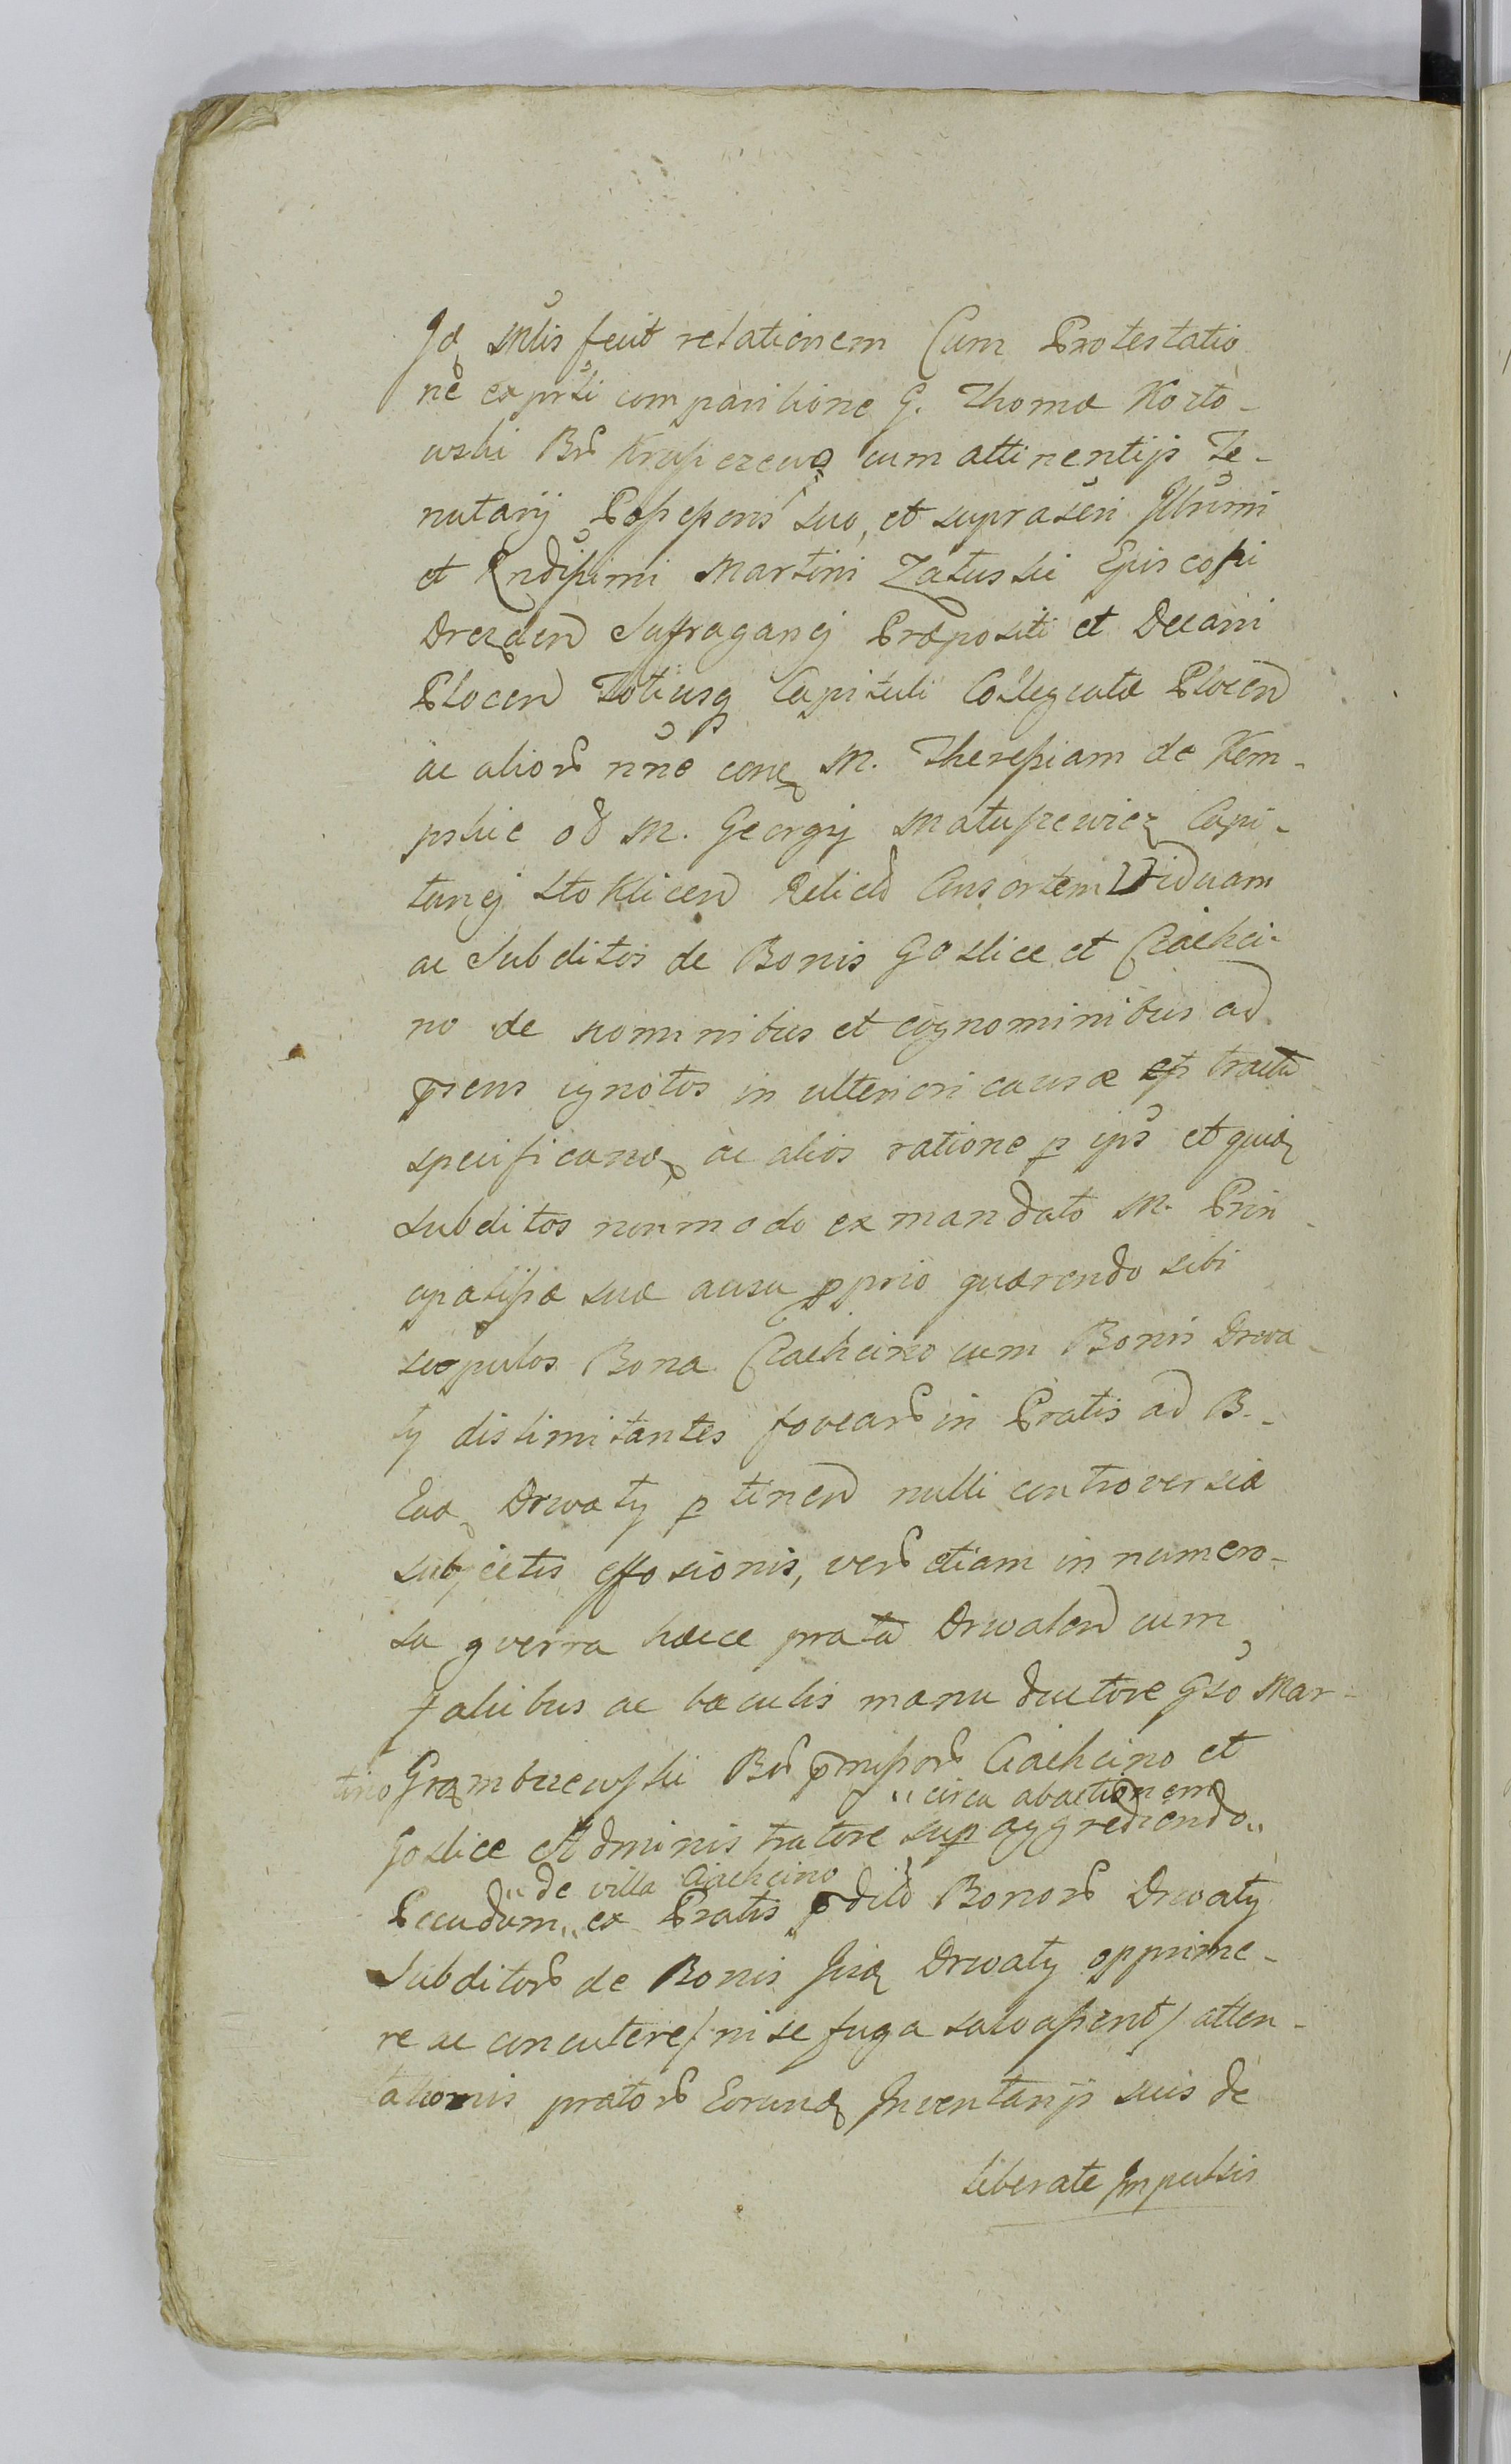 Id Mlis fecit relationem Cum Protestatio
ne ex prsti comparitione G. Thomæ Kozło-
wski Br Krajczewo cum attinentijs Te-
nutarij Possessoris suo, et suprascri Illrimi
et Rndissimi Martini Załuski Episcopi
Drezden Suffraganej Præpositi et Decani
Plocen Totiusq Capituli Collegiatæ Plocen
ac alior nne conq M. Theressiam de Kem-
pskie od M. Georgij Matuszewicz Capi-
tanej Stoklicen Relictd Consortem Viduam
ac Subditos de Bonis Goslice et Ciachci-
no de nominibus et cognominibus ad
psens ignotos in ulteriori causæ tractu
specificand ac alios ratione p ips et quid
subditos nonmodo ex mandato M. Prin-
cipalissæ suæ ausu pprio quærendo sibi
scopulos Bona Ciachcino cum Bonis Drwa-
ty dislimitantes fovear in Pratis ad B.
Ead Drwaty ptinen nulli controversiæ
subjectis effosionis, ver etiam in numero-
sa gverra hæce prata Drwalen cum
falcibus ac baculis manu ductore Gso Mar-
tino Grąmbczewski Br pmissor Ciachcino et
„circa abactionem
Goslice Administratore sup aggrediendo„
„de villa Ciachcino
Pecudum„ ex Pratis pdict Bonor Drwaty
Subditor de Bonis Iisd Drwaty opprime-
re ac concutere / ni se fuga salvassent / atten-
tationis prator Eorund Inventarijs suis de
liberate Impulsis